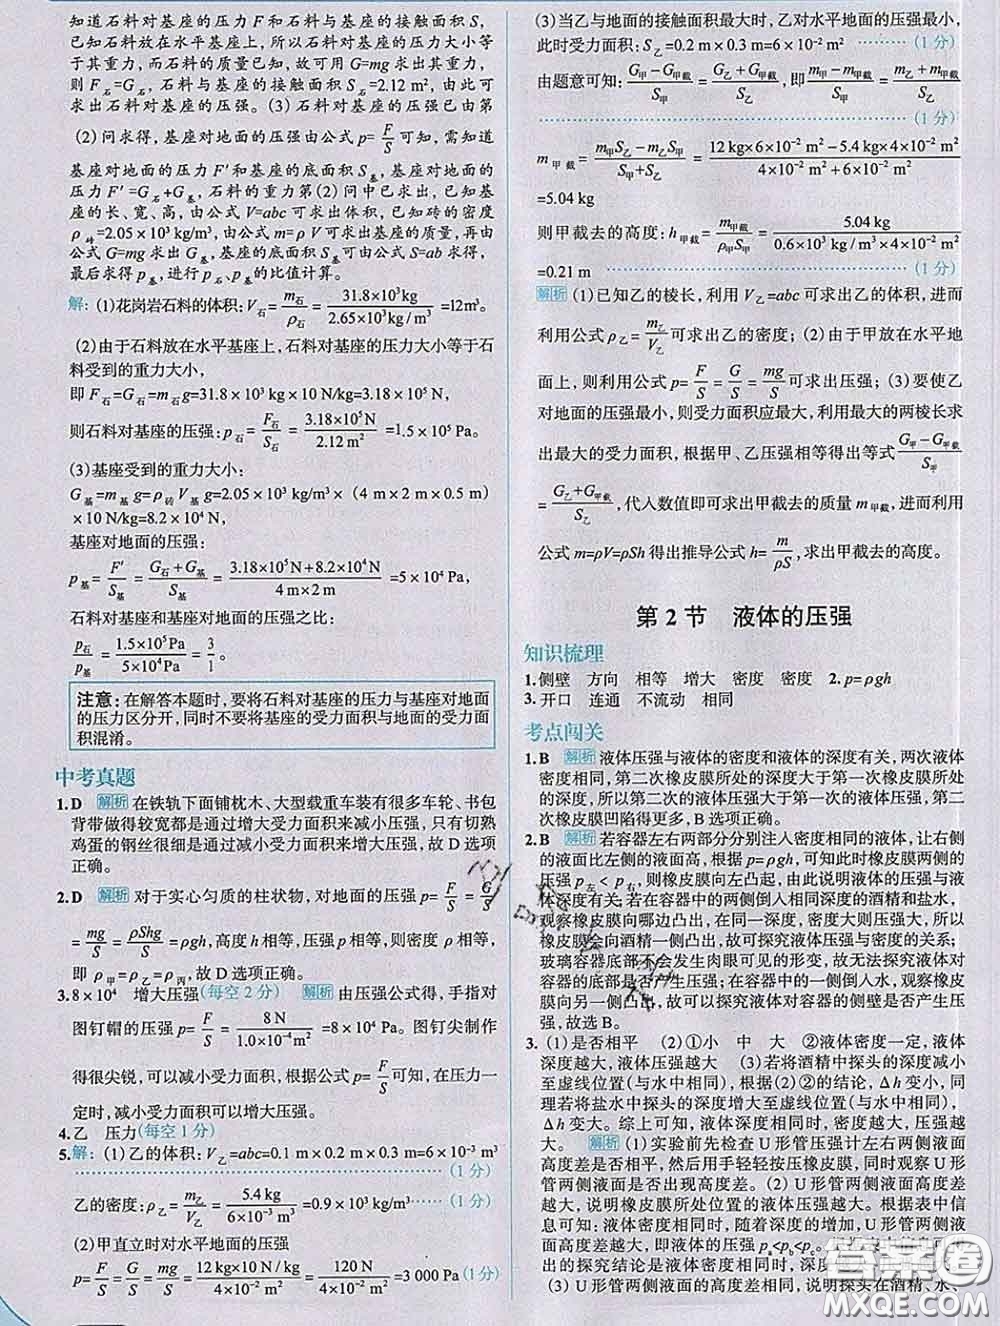 知道石料对基座的压力F和石料与基座的接触面积S,
已知石料放在水平基座上,所以石料对基座的压力大小等
于其重力,而石料的质量已知,故可用G=mg求出其重力,
则F石=G石,石料与基座的接触面积S石=2.12 m²,由此可
求出石料对基座的压强。(3)石料对基座的压强已由第
(2)问求得,基座对地面的压强由公式 p=F/S 可知,需知道
基座对地面的压力F′和基座的底面积S基,基座对地面的
压力F′=G石+G基,石料的重力第(2)问中已求出,已知基
座的长、宽、高,由公式V=abc可求出体积,已知砖的密度
ρ砖=2.05×10³ kg/m³,由公式m=ρV可求出基座的质量,再由
公式G=mg求出G基,基座的底面积S基由公式S=ab求得,
最后求得p基,进行p石与p基的比值计算。
解:(1)花岗岩石料的体积:V石=m石/ρ石=31.8×10³kg/2.65×10³kg/m³=12m³。
(2)由于石料放在水平基座上,石料对基座的压力大小等于石
料受到的重力大小,
即F石=G石=m石g=31.8×10³ kg×10 N/kg=3.18×10⁵ N,
则石料对基座的压强:p石=F石/S石=3.18×10⁵N/2.12 m²=1.5×10⁵ Pa。
(3)基座受到的重力大小:
G基=m基g=ρ砖V基g=2.05×10³ kg/m³×(4 m×2 m×0.5 m)
×10 N/kg=8.2×10⁴ N,
基座对地面的压强:
p基=F′/S基=(G石+G基)/S基=(3.18×10⁵N+8.2×10⁴N)/(4 m×2 m)=5×10⁴ Pa,
石料对基座和基座对地面的压强之比:
p石/p基=1.5×10⁵Pa/5×10⁴Pa=3/1。
注意:在解答本题时,要将石料对基座的压力与基座对地面
的压力区分开,同时不要将基座的受力面积与地面的受力面
积混淆。
中考真题
1.D 解析 在铁轨下面铺枕木、大型载重车装有很多车轮、书包
背带做得较宽都是通过增大受力面积来减小压强,只有切熟
鸡蛋的钢丝很细是通过减小受力面积来增大压强,故D选项
正确。
2.D 解析 对于实心匀质的柱状物,对地面的压强p=F/S=G/S
=mg/S=ρShg/S=ρgh,高度h相等,压强p相等,则密度ρ相等,
即ρ甲=ρ乙=ρ丙,故D选项正确。
3.8×10⁴ 增大压强(每空2分) 解析 由压强公式得,手指对
图钉帽的压强p=F/S=8 N/1.0×10⁻⁴m²=8×10⁴ Pa。图钉尖制作
得很尖锐,可以减小受力面积,根据公式p=F/S可知,在压力一
定时,减小受力面积可以增大压强。
4.乙 压力(每空1分)
5.解:(1)乙的体积:V乙=abc=0.1 m×0.2 m×0.3 m=6×10⁻³ m³
(1分)
乙的密度:ρ乙=m乙/V乙=5.4 kg/6×10⁻³ m³=0.9×10³ kg/m³ (1分)
(2)甲直立时对水平地面的压强
p=F/S=G/S=mg/S=12 kg×10 N/kg/4×10⁻² m²=120 N/4×10⁻² m²=3 000 Pa(1分)
(3)当乙与地面的接触面积最大时,乙对水平地面的压强最小,
此时受力面积:S乙=0.2 m×0.3 m=6×10⁻² m² (1分)
由题意可知:(G甲−G甲截)/S甲=(G乙+G甲截)/S乙,即(m甲−m甲截)/S甲=(m乙+m甲截)/S乙
(1分)
m甲截=(m甲S乙−m乙S甲)/(S甲+S乙)=(12 kg×6×10⁻² m²−5.4 kg×4×10⁻² m²)/(4×10⁻² m²+6×10⁻² m²)
=5.04 kg
则甲截去的高度:h甲截=m甲截/ρ甲S甲=5.04 kg/0.6×10³ kg/m³×4×10⁻² m²
=0.21 m (1分)
解析 (1)已知乙的棱长,利用V乙=abc可求出乙的体积,进而
利用公式ρ乙=m乙/V乙可求出乙的密度;(2)由于甲放在水平地
面上,则利用公式p=F/S=G/S=mg/S可求出压强;(3)要使乙
对地面的压强最小,则受力面积应最大,利用最大的两棱长求
出最大的受力面积,根据甲、乙压强相等得出等式(G甲−G甲截)/S甲
=(G乙+G甲截)/S乙,代入数值即可求出甲截去的质量m甲截,进而利用
公式m=ρV=ρSh得出推导公式h=m/ρS,求出甲截去的高度。
第2节 液体的压强
知识梳理
1.侧壁 方向 相等 增大 密度 密度 2.p=ρgh
3.开口 连通 不流动 相同
考点闯关
1.B 解析 液体压强与液体的密度和液体的深度有关,两次液体
密度相同,第二次橡皮膜所处的深度大于第一次橡皮膜所处
的深度,所以第二次的液体压强大于第一次的液体压强,第二
次橡皮膜凹陷得更多,B选项正确。
2.B 解析 若容器左右两部分分别注入密度相同的液体,让右侧
的液面比左侧的液面高,根据p=ρgh,可知此时橡皮膜两侧的
压强p左<p右,则橡皮膜向左凸起,由此说明液体的压强与液
体深度有关;若在容器的两侧倒入相同深度的酒精和盐水,
观察橡皮膜向哪边凸出,在同一深度,密度大则压强大,所以
橡皮膜会向酒精一侧凸出,故可探究液体压强与密度的关系;
玻璃容器底部不会发生肉眼可见的形变,故无法探究液体对
容器的底部是否产生压强;在容器中的一侧倒入水,观察橡皮
膜向另一侧凸出,故可以探究液体对容器的侧壁是否产生压
强,故选B。
3.(1)是否相平 (2)①小 中 大 ②液体密度一定,液体
深度越大,液体压强越大 (3)若将酒精中探头的深度减小
至虚线位置(与水中相同),根据(2)②的结论,Δh变小,同
样若将盐水中探头的深度增大至虚线位置(与水中相同),
Δh变大。综上可知,液体的密度越大,压强越
大。 解析 (1)实验前先检查U形管压强计左右两侧液面
高度差是否相平,然后用手轻轻按压橡皮膜,观察U形
管两侧液面是否出现高度差。(2)U形管两侧液面高度差
越大,说明橡皮膜所处位置的液体压强越大。根据表中信
息可知:液体密度相同时,随着深度的增加,U形管两侧液
面高度差越大,即液体的压强pa<pb<pc。
出的探究结论是液体密度
(3)U形管两侧液面的高度差相同,说明探头在酒精、水、
答案圈
MXQE.COM